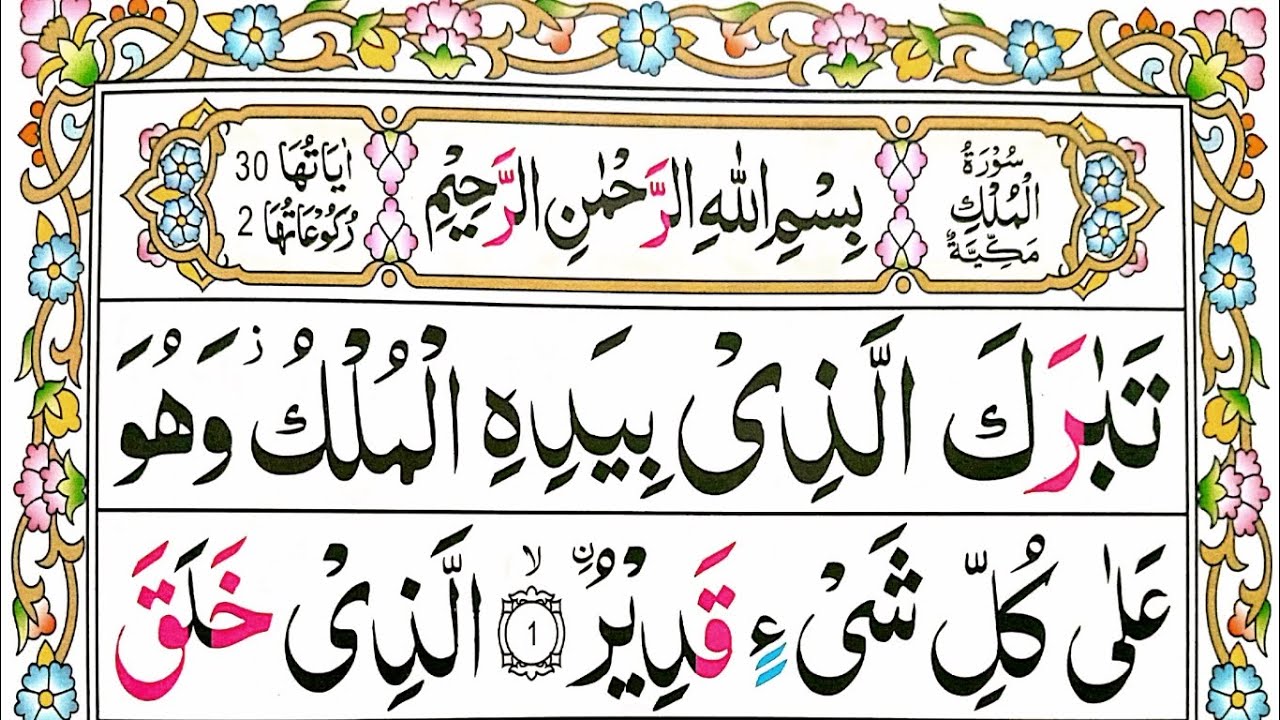 سُوْرَةُ
الْمُلْكِ
مَكِّيَّةٌ
بِسْمِ اللّٰهِ الرَّحْمٰنِ الرَّحِيْمِ
اٰيَاتُهَا 30
رُكُوْعَاتُهَا 2
تَبٰرَكَ الَّذِىْ بِيَدِهِ الْمُلْكُ ز وَهُوَ
عَلٰى كُلِّ شَىْءٍ قَدِيْرُ ۨ ۙ 1 الَّذِىْ خَلَقَ